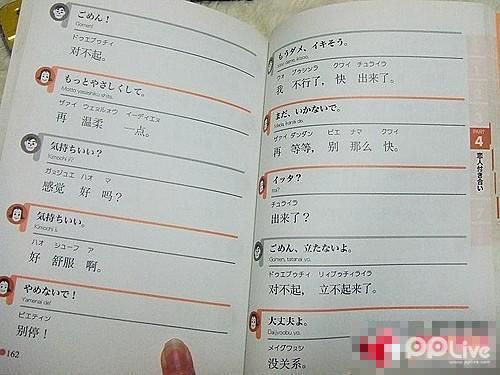 ごめん！
Gomen!
ドゥエブゥチィ
对不起。
もっとやさしくして。
Motto yasashiku shite.
ザァイ ウェンルォウ イーディエン
再 温柔 一点。
気持ちいい？
Kimochi ii?
ガンジュエ ハオ マ
感觉 好 吗？
気持ちいい。
Kimochi ii.
ハオ シューフ ア
好 舒服 啊。
やめないで！
Yamenai de!
ビエティン
别停！
162
もうダメ、イキそう。
ウオ ブゥシンラ クワイ チュライラ
我 不行了， 快 出来了。
まだ、いかないで。
ザァイ ダンダン ビエ ナマ クワイ
再 等等， 别 那么 快。
イッタ？
Itta?
チュライラ
出来了？
ごめん、立たないよ。
Gomen, tatanai yo.
ドゥエブゥチィ リィブゥチィライラ
对不起， 立不起来了。
大丈夫よ。
Daijyoobu yo.
メイグワンシ
没关系。
PART
4
恋人付き合い
PPLive